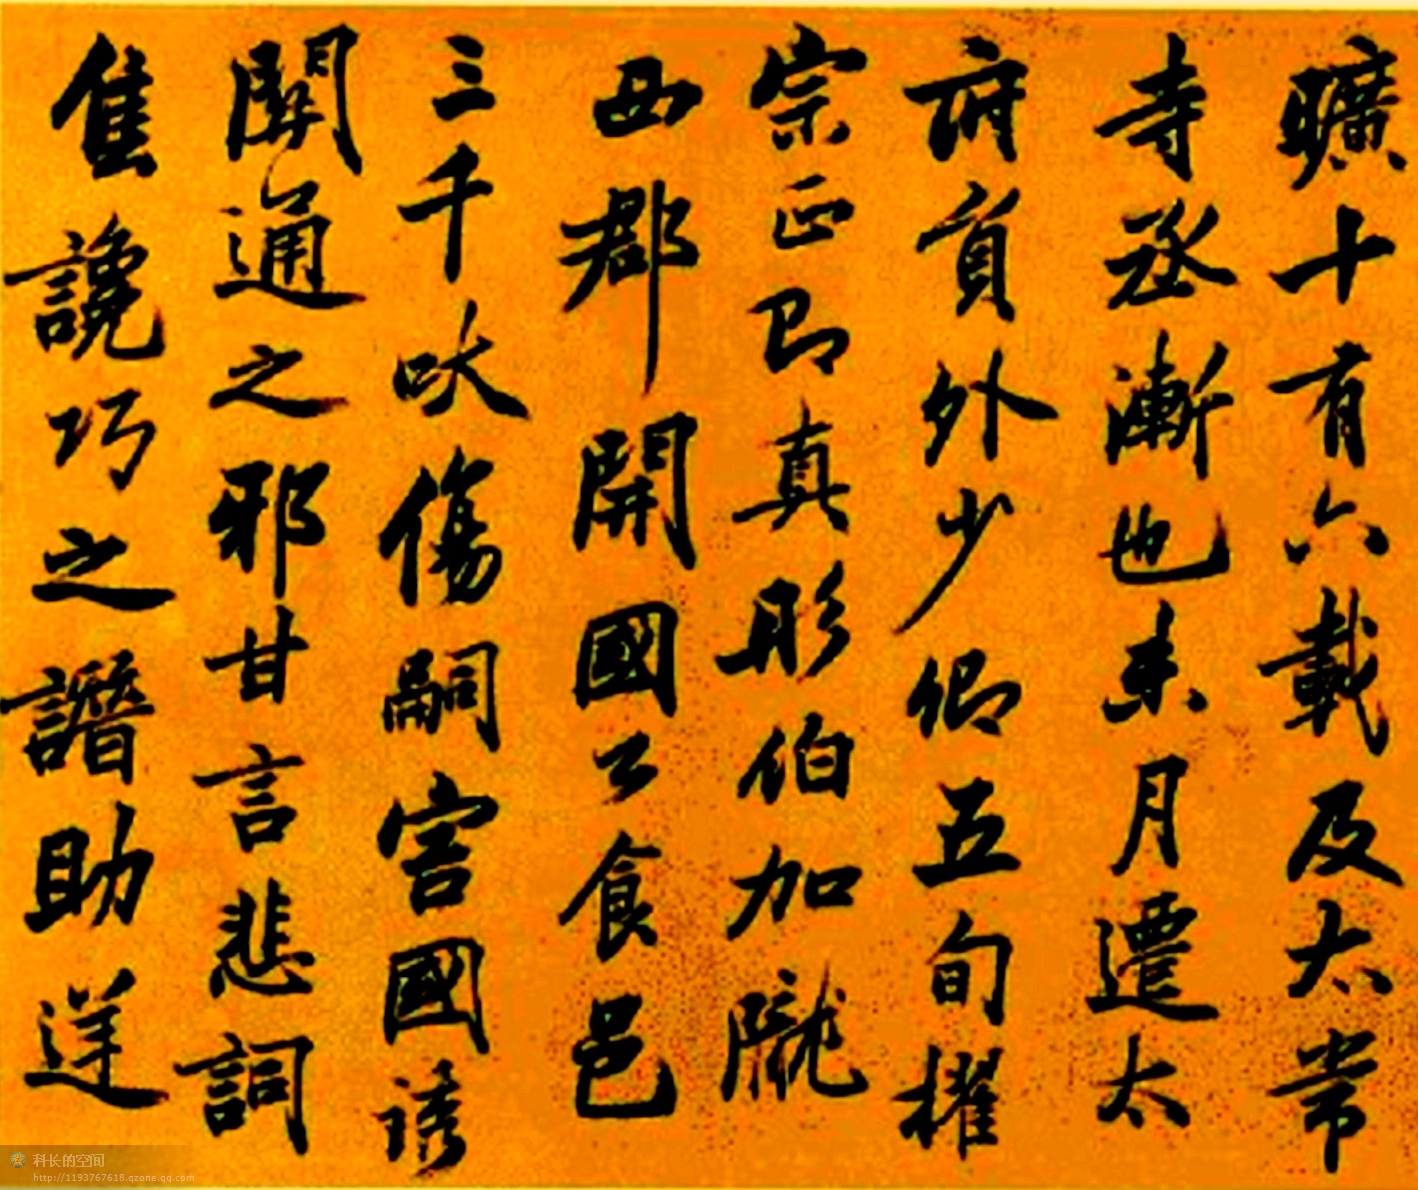 曠十有六載及太常
寺丞漸也未月遷太
府負外少卿五旬擢
宗正即真彤伯加隴
西郡開國公食邑
三千吠傷嗣害國誘
關通之邪甘言悲詞
隹讒巧之譖助逆
科长的空间
http://1193767618.qzone.qq.com